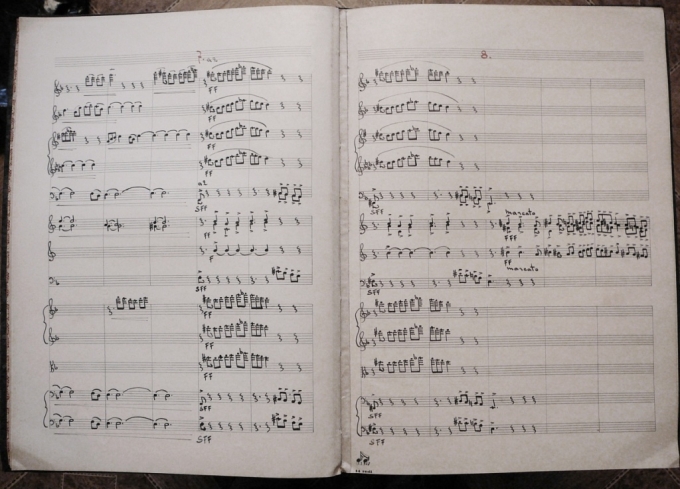 7.
8.
FF
FF
FF
FF
a2
SFF
FF
F
SFF
FF
FF
FF
SFF
SFF
SFF
marcato
FFF
FF
marcato
SFF
SFF
SFF